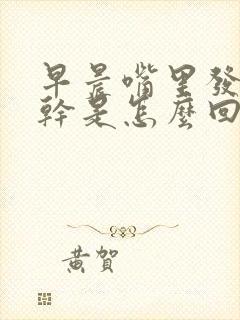 早晨嘴里發
幹是怎麼回
黃賀